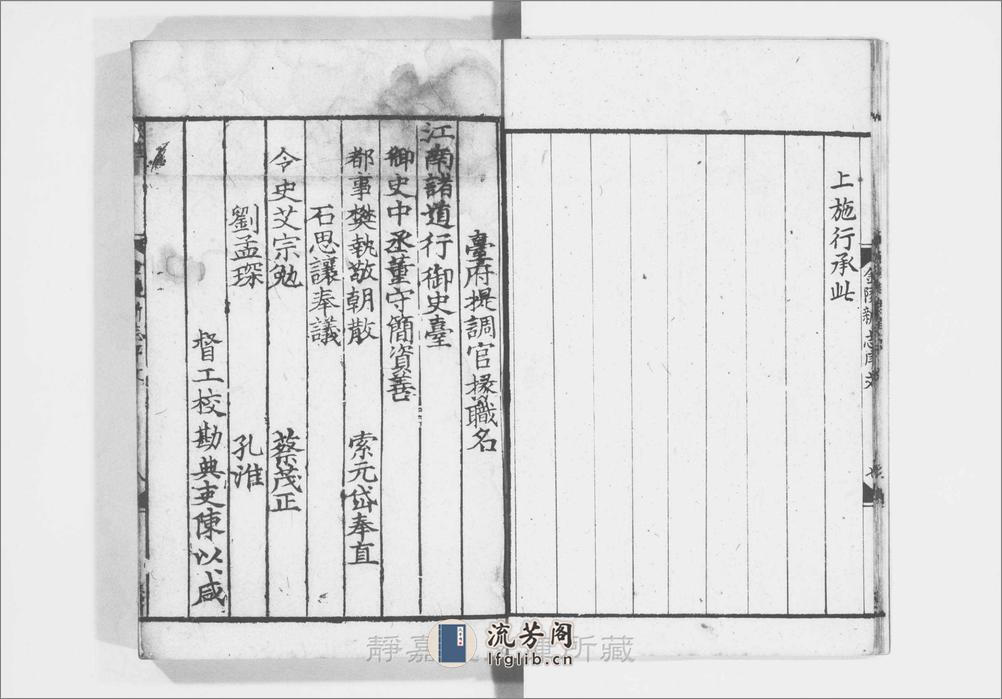 上施行承此
金陵新志序文
臺府提調官掾職名
江南諸道行御史臺
御史中丞董守簡資善
都事樊執敬朝散 索元岱奉直
石思讓奉議
令史艾宗勉 蔡茂正
劉孟琛 孔淮
督工校勘典吏陳以咸
靜嘉 所藏
流芳阁
lfglib.cn